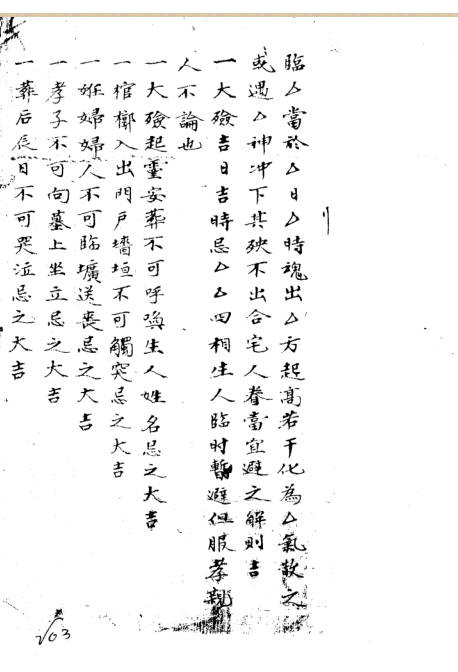 臨△當於△日△時魂出△方起高若干化為△氣散之
或遇△神冲下其殃不出合宅人眷當宜避之解則吉
一大殮吉日吉時忌△△四相生人臨时暫避但服孝親
人不論也
一大殮起靈安葬不可呼喚生人姓名忌之大吉
一棺槨入出門戶墻垣不可觸突忌之大吉
一妊婦婦人不可臨壙送喪忌之大吉
一孝子不可向墓上坐立忌之大吉
一葬后辰日不可哭泣忌之大吉
103